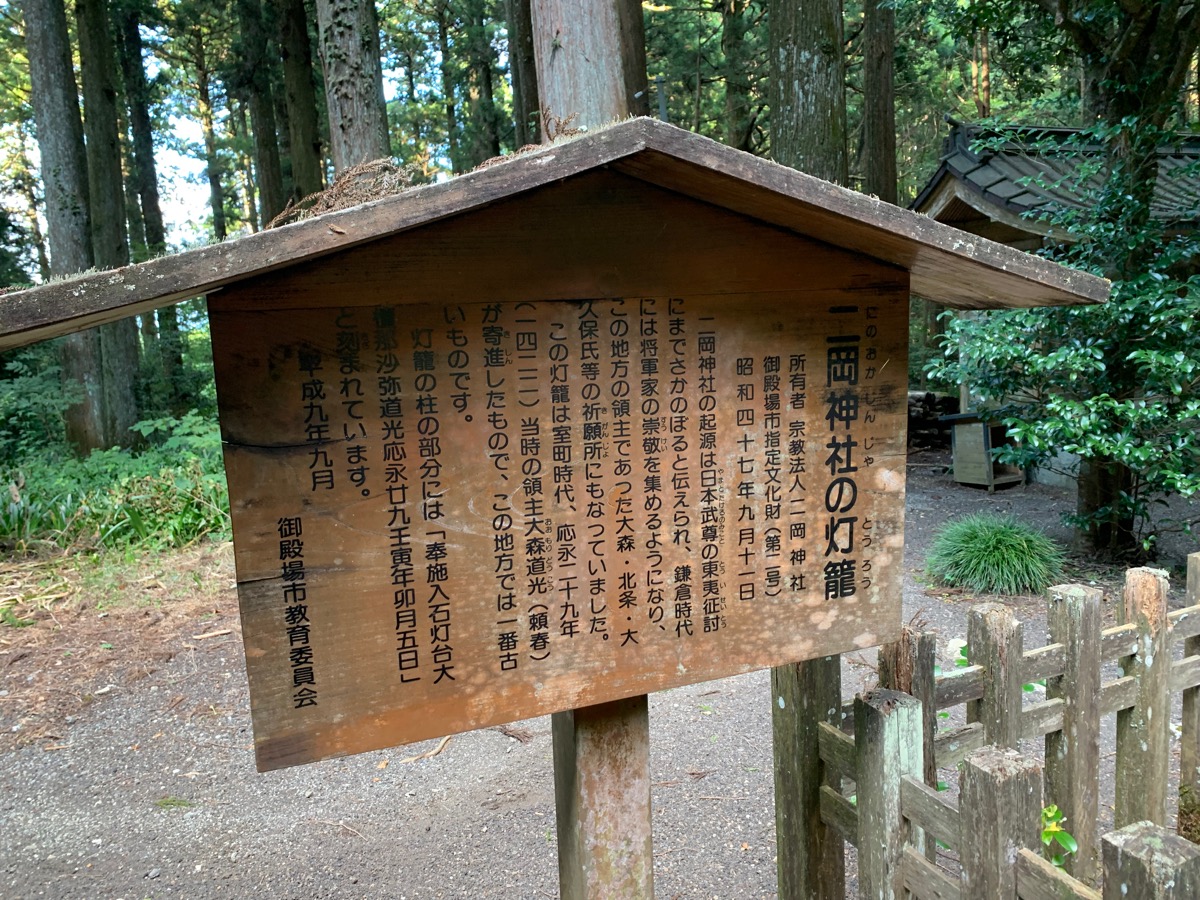 にのおかじんじゃ とうろう
二岡神社の灯籠
所有者 宗教法人二岡神社
御殿場市指定文化財(第二号)
昭和四十七年九月十一日
二岡神社の起源は日本武尊の東夷征討
にまでさかのぼると伝えられ、鎌倉時代
には将軍家の崇敬を集めるようになり、
この地方の領主であった大森・北条・大
久保氏等の祈願所にもなっていました。
この灯籠は室町時代、応永二十九年
(一四二二)当時の領主大森道光(頼春)
が寄進したもので、この地方では一番古
いものです。
灯籠の柱の部分には「奉施入石灯台大
檀那沙弥道光応永廿九壬寅年卯月五日」
と刻まれています。
平成九年九月
御殿場市教育委員会